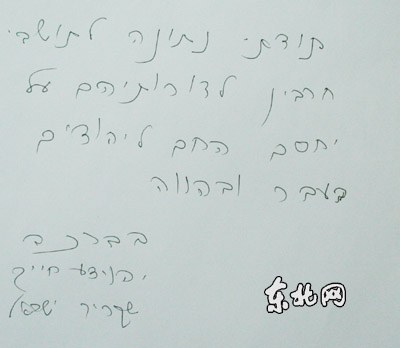 תודתי נתונה לתושבי
חרבין לדורותיהם על
יחסם החם ליהודים
בעבר ובהווה
בברכה
יהוידע חיים
שגריר ישראל
东北网